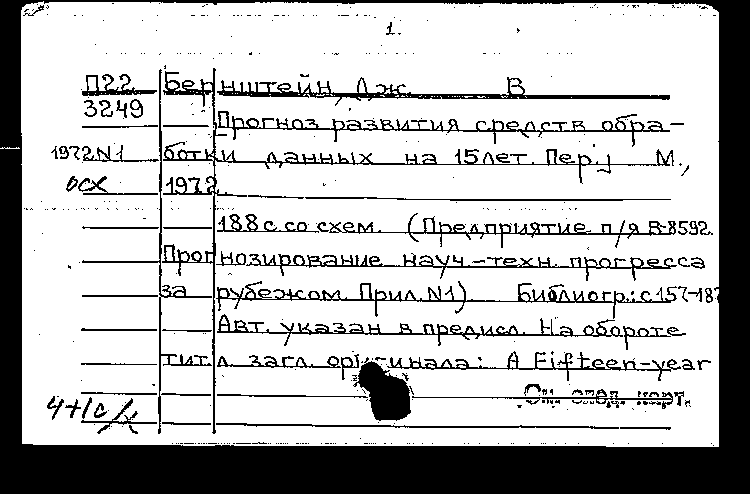 1.
П22 Бернштейн, Дж. В
3249 Прогноз развития средств обра-
1972N1 ботки данных на 15 лет. Пер. М.,
осх 1972.
188 с. со схем. (Предприятие п/я В-8592.
Прогнозирование науч.-техн. прогресса
за рубежом. Прил. N1) Библиогр.: с 157-187
Авт. указан в предисл. На обороте
тит. л. загл. оригинала: A Fifteen-year
См. след. карт.
4+1с